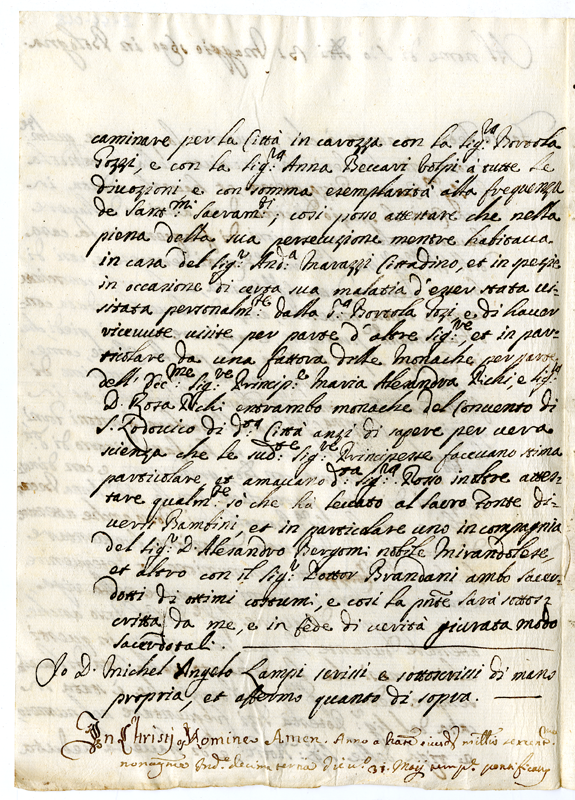 caminare per la Città in carozza con la Sig.ra Bortola
Gozzi, e con la Sig.ra Anna Beccari Volpi à tutte le
divozioni e con somma esemplarità alla frequenza
de Sant.mi Sacram.ti; così posso attestare che nella
piena della sua persecuzione mentre habitava
in casa del Sig.r And.a Marazzi Cittadino, et in spezie
in occasione di certa sua malatia d'esser stata vi-
sitata personalm.te dalla S.ra Bortola Gozi e di haver
ricevute visite per parte d'altre Sig.re, et in par-
ticolare da una fattora delle Monache, per parte
dell' Ecc.me Sig.re Princip.e Maria Alesandra Pichi e Sig.ra
D. Rosa Pichi entrambo monache del Convento di
S. Lodovico di d.ta Città anzi di sapere per vera
scienza che le sud.te Sig.re Principesse facevano stima
particolare, et amavano d.ta Sig.ra Posso inoltre attes-
tare qualm.te sò che ha levato al Sacro Fonte di-
versi Bambini, et in particolare uno in compagnia
del Sig.r D. Alesandro Bergomi nobile Mirandolese
et altro con il Sig.r Dottor Brandani ambo Sacer-
dotti di ottimi costumi, e così la pnte sarà sottos-
critta da me, e in fede di verità giurata modo
sacerdotali.
Io D. Michel Angelo Lampi scrissi e sottoscrissi di mano
propria, et affermo quanto di sopra.
In Christi Nomine Amen. Anno a
31 Maij